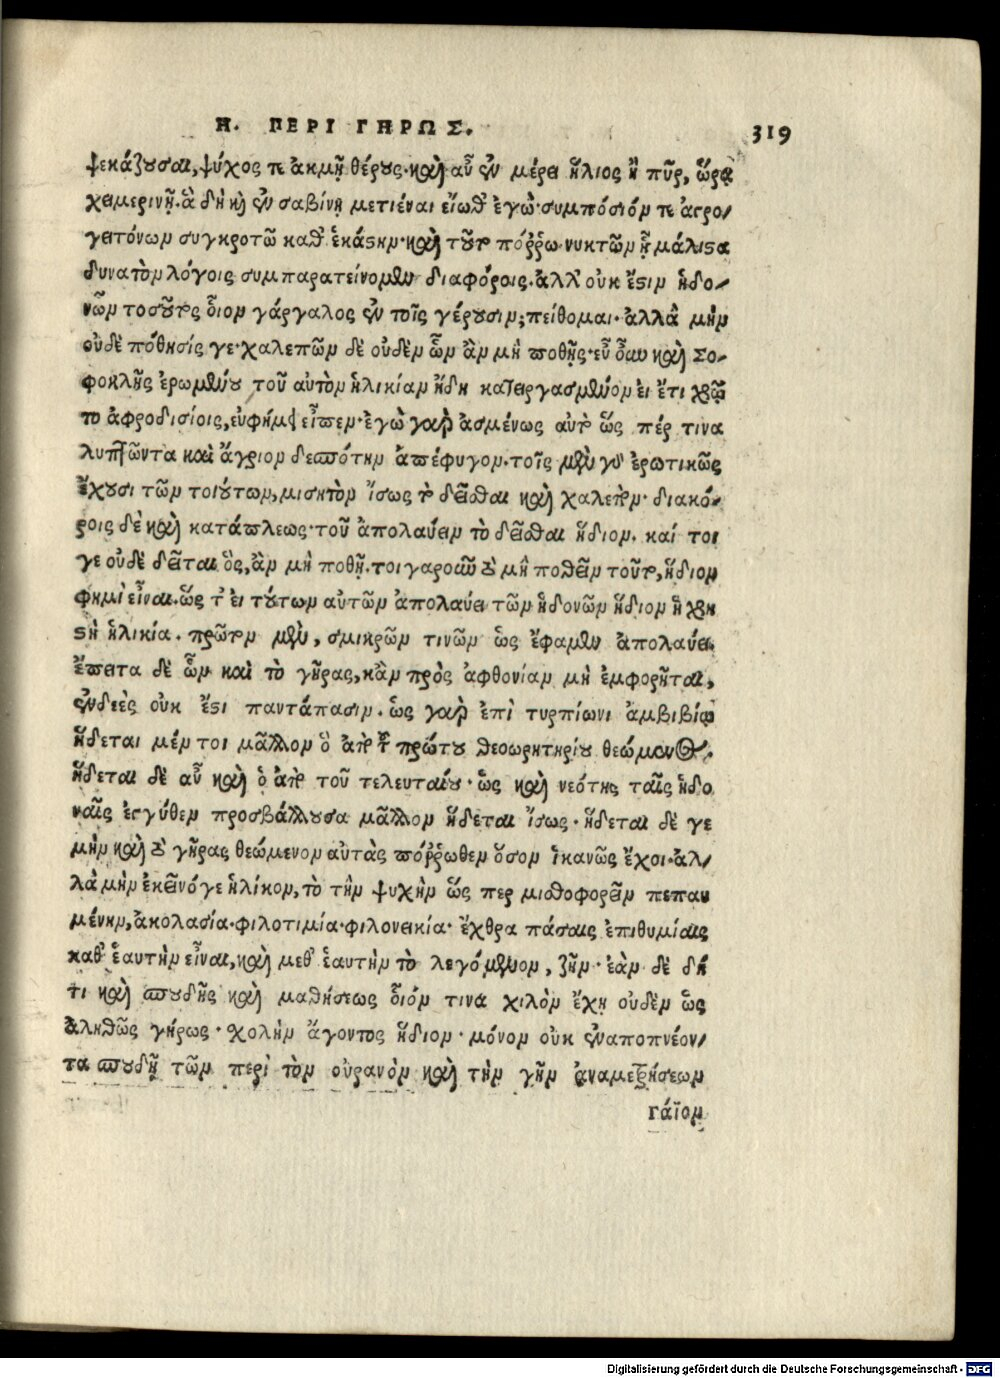 Η. ΠΕΡΙ ΓΗΡΩΣ. 319
ψεκάζουσαι, ψύχος τε ἀκμῇ θέρους· καὶ αὖ ἐν μέρει ἥλιος ἢ πῦρ, ὥρᾳ
χειμερινῇ. ἃ δὴ κὴ ἐν σαβίνῃ μετιέναι εἴωθ' ἐγώ· συμπόσιόν τε ἀγρο/
γειτόνων συγκροτῶ καθ' ἑκάστην· καὶ τοῦτο πόῤῥω νυκτῶν ᾗ μάλιστα
δυνατὸν λόγοις συμπαρατείνομεν διαφόροις. ἀλλ' οὐκ ἔστιν ἡδο/
νῶν τοσοῦτος οἷον γάργαλος ἐν τοῖς γέρουσιν; πείθομαι. ἀλλὰ μὴν
οὐδὲ πόθησίς γε· χαλεπῶν δὲ οὐδὲν ὧν ἂν μὴ ποθῇς· εὖ οὖν καὶ Σο/
φοκλῆς ἐρωμένου τοῦ αὐτὸν ἡλικίαν ἤδη κατειργασμένον εἰ ἔτι χρῷ
το ἀφροδισίοις, εὐφήμει εἶπεν· ἐγὼ γὰρ ἀσμένως αὐτὸ ὥς πέρ τινα
λυττῶντα καὶ ἄγριον δεσπότην ἀπέφυγον. τοῖς μὲν γὰρ ἐρωτικῶς
ἔχουσι τῶν τοιούτων, μισητὸν ἴσως τὸ δεῖσθαι καὶ χαλεπόν· διακό/
ροις δὲ καὶ κατάπλεως· τοῦ ἀπολαύειν τὸ δεῖσθαι ἥδιον. καί τοι
γε οὐδὲ δεῖται ὅς, ἂν μὴ ποθῇ. τοιγαροῦν τὸ μὴ ποθεῖν τοῦτο, ἥδιον
φημὶ εἶναι. ὥς τ' εἰ τούτων αὐτῶν ἀπολαύει τῶν ἡδονῶν ἥδιον ἡ χρη
στὴ ἡλικία. πρῶτον μὲν, σμικρῶν τινῶν ὡς ἔφαμεν ἀπολαύει.
ἔπειτα δὲ ὧν καὶ τὸ γῆρας, κἂν πρὸς ἀφθονίαν μὴ ἐμφορῆται,
ἐνδεὲς οὐκ ἔστι παντάπασιν. ὡς γὰρ ἐπὶ τυρπίωνι ἀμβιβίῳ
ἥδεται μέν τοι μᾶλλον ὁ ἀπὸ τοῦ πρώτου θεοωρητηρίου θεώμενος.
ἥδεται δὲ αὖ καὶ ὁ ἀπὸ τοῦ τελευταίου· ὣς καὶ νεότης ταῖς ἡδο
ναῖς ἐγγύθεν προσβάλλουσα μᾶλλον ἥδεται ἴσως. ἥδεται δέ γε
μὴν καὶ τὸ γῆρας θεώμενον αὐτὰς πόῤῥωθεν ὅσον ἱκανῶς ἔχοι. ἀλ/
λὰ μὴν ἐκεῖνό γε ἡλίκον, τὸ τὴν ψυχὴν ὥς περ μισθοφορεῖν πεπαυ
μένην, ἀκολασία· φιλοτιμία· φιλονεικία· ἔχθρα πάσαις ἐπιθυμίαις
καθ' ἑαυτὴν εἶναι, καὶ μεθ' ἑαυτὴν τὸ λεγόμενον, ζῆν· ἐὰν δὲ δή
τι καὶ σπουδῆς καὶ μαθήσεως οἷόν τινα χιλὸν ἔχῃ οὐδὲν ὡς
ἀληθῶς γήρως· σχολὴν ἄγοντος ἥδιον· μόνον οὐκ ἐναποπνέον/
τα σπουδῇ τῶν περὶ τὸν οὐρανὸν καὶ τὴν γῆν ἀναμετρήσεων
Γάϊον
Digitalisierung gefördert durch die Deutsche Forschungsgemeinschaft - DFG